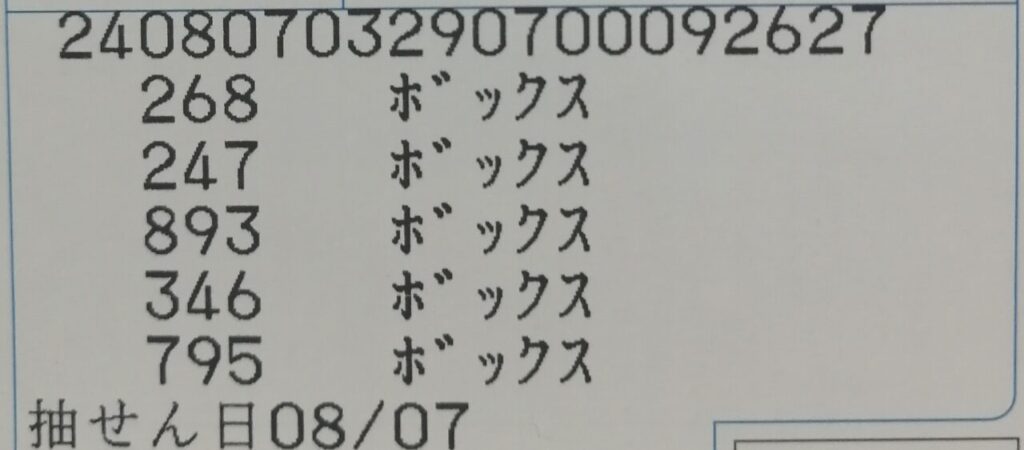 24080703290700092627
268 ボックス
247 ボックス
893 ボックス
346 ボックス
795 ボックス
抽せん日08/07